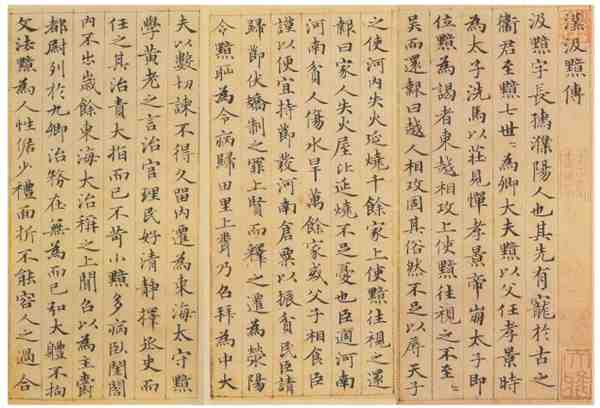 漢汲黯傳
汲黯字長孺濮陽人也其先有寵於古之
衞君至黯七世〻為卿大夫黯以父任孝景時
為太子洗馬以莊見憚孝景帝崩太子即
位黯為謁者東越相攻上使黯往視之不至〻
吳而還報曰越人相攻固其俗然不足以辱天子
之使河内失火延燒千餘家上使黯往視之還
報曰家人失火屋比延燒不足憂也臣過河南
河南貧人傷水旱萬餘家或父子相食臣
謹以便宜持節發河南倉粟以振貧民臣請
歸節伏矯制之罪上賢而釋之遷為滎陽
令黯恥為令病歸田里上聞乃召拜為中大
夫以數切諫不得久留内遷為東海太守黯
學黃老之言治官理民好清靜擇丞史而
任之其治責大指而已不苛小黯多病臥閨閤
内不出歲餘東海大治稱之上聞召以為主爵
都尉列於九卿治務在無為而已弘大體不拘
文法黯為人性倨少禮面折不能容人之過合